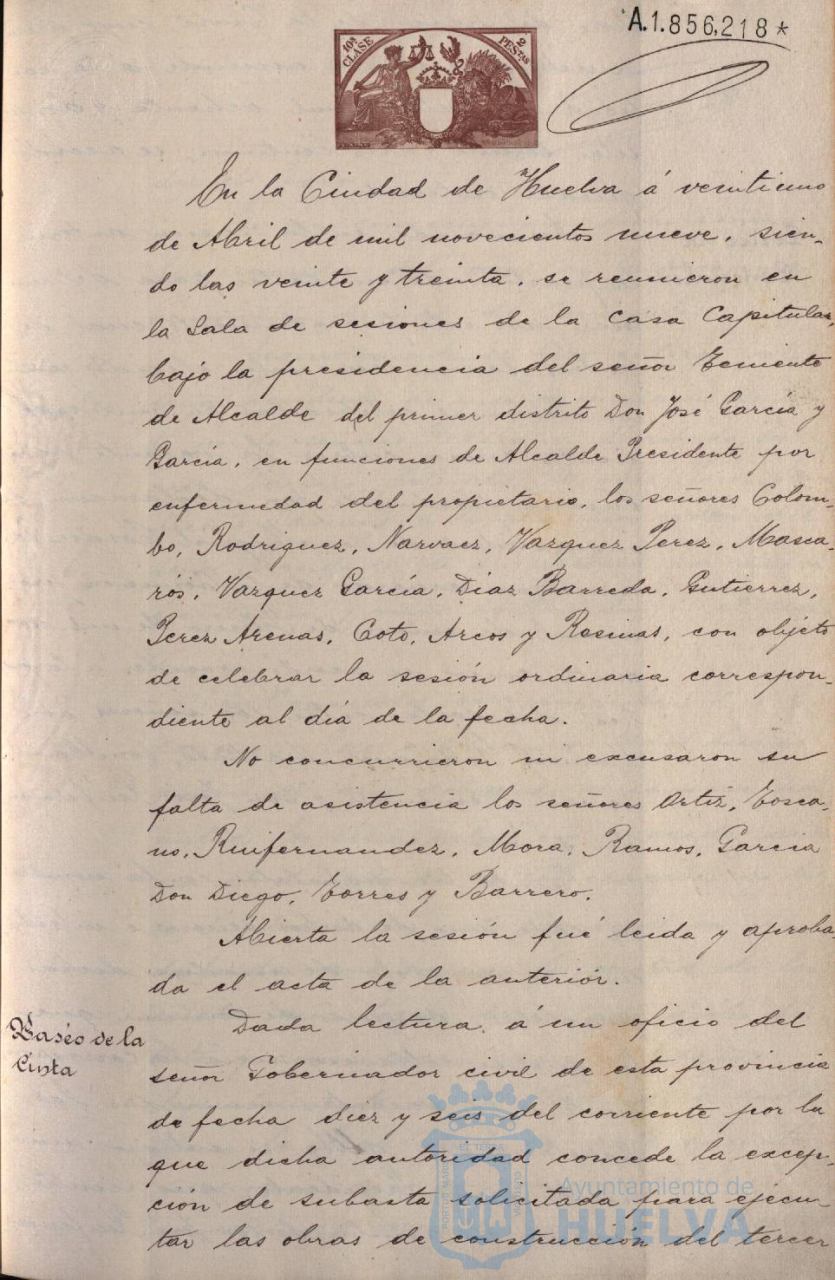 A.1.856,218*
10ª CLASE
2 PESTAS
En la Ciudad de Huelva á veintiuno
de Abril de mil novecientos nueve, sien-
do las veinte y treinta, se reunieron en
la Sala de sesiones de la Casa Capitular,
bajo la presidencia del señor Teniente
de Alcalde del primer distrito Don José García y
García, en funciones de Alcalde Presidente por
enfermedad del propietario, los señores Colom-
bo, Rodriguez, Narvaez, Vazquez Perez, Masca-
rós, Vazquez García, Diaz Barreda, Gutierrez,
Perez Arenas, Coto, Arcos y Rosinas, con objeto
de celebrar la sesión ordinaria correspon-
diente al día de la fecha.
No concurrieron ni excusaron su
falta de asistencia los señores Ortiz, Tosca-
no, Ruifernandez, Mora, Ramos, García
Don Diego, Torres y Barrero.
Abierta la sesión fué leida y aproba
da el acta de la anterior.
Paséo de la
Cinta
Dada lectura á un oficio del
señor Gobernador civil de esta provincia
de fecha diez y seis del corriente por la
que dicha autoridad concede la excep-
ción de subasta solicitada para ejecu-
tar las obras de construcción del tercer
Ayuntamiento de
HUELVA